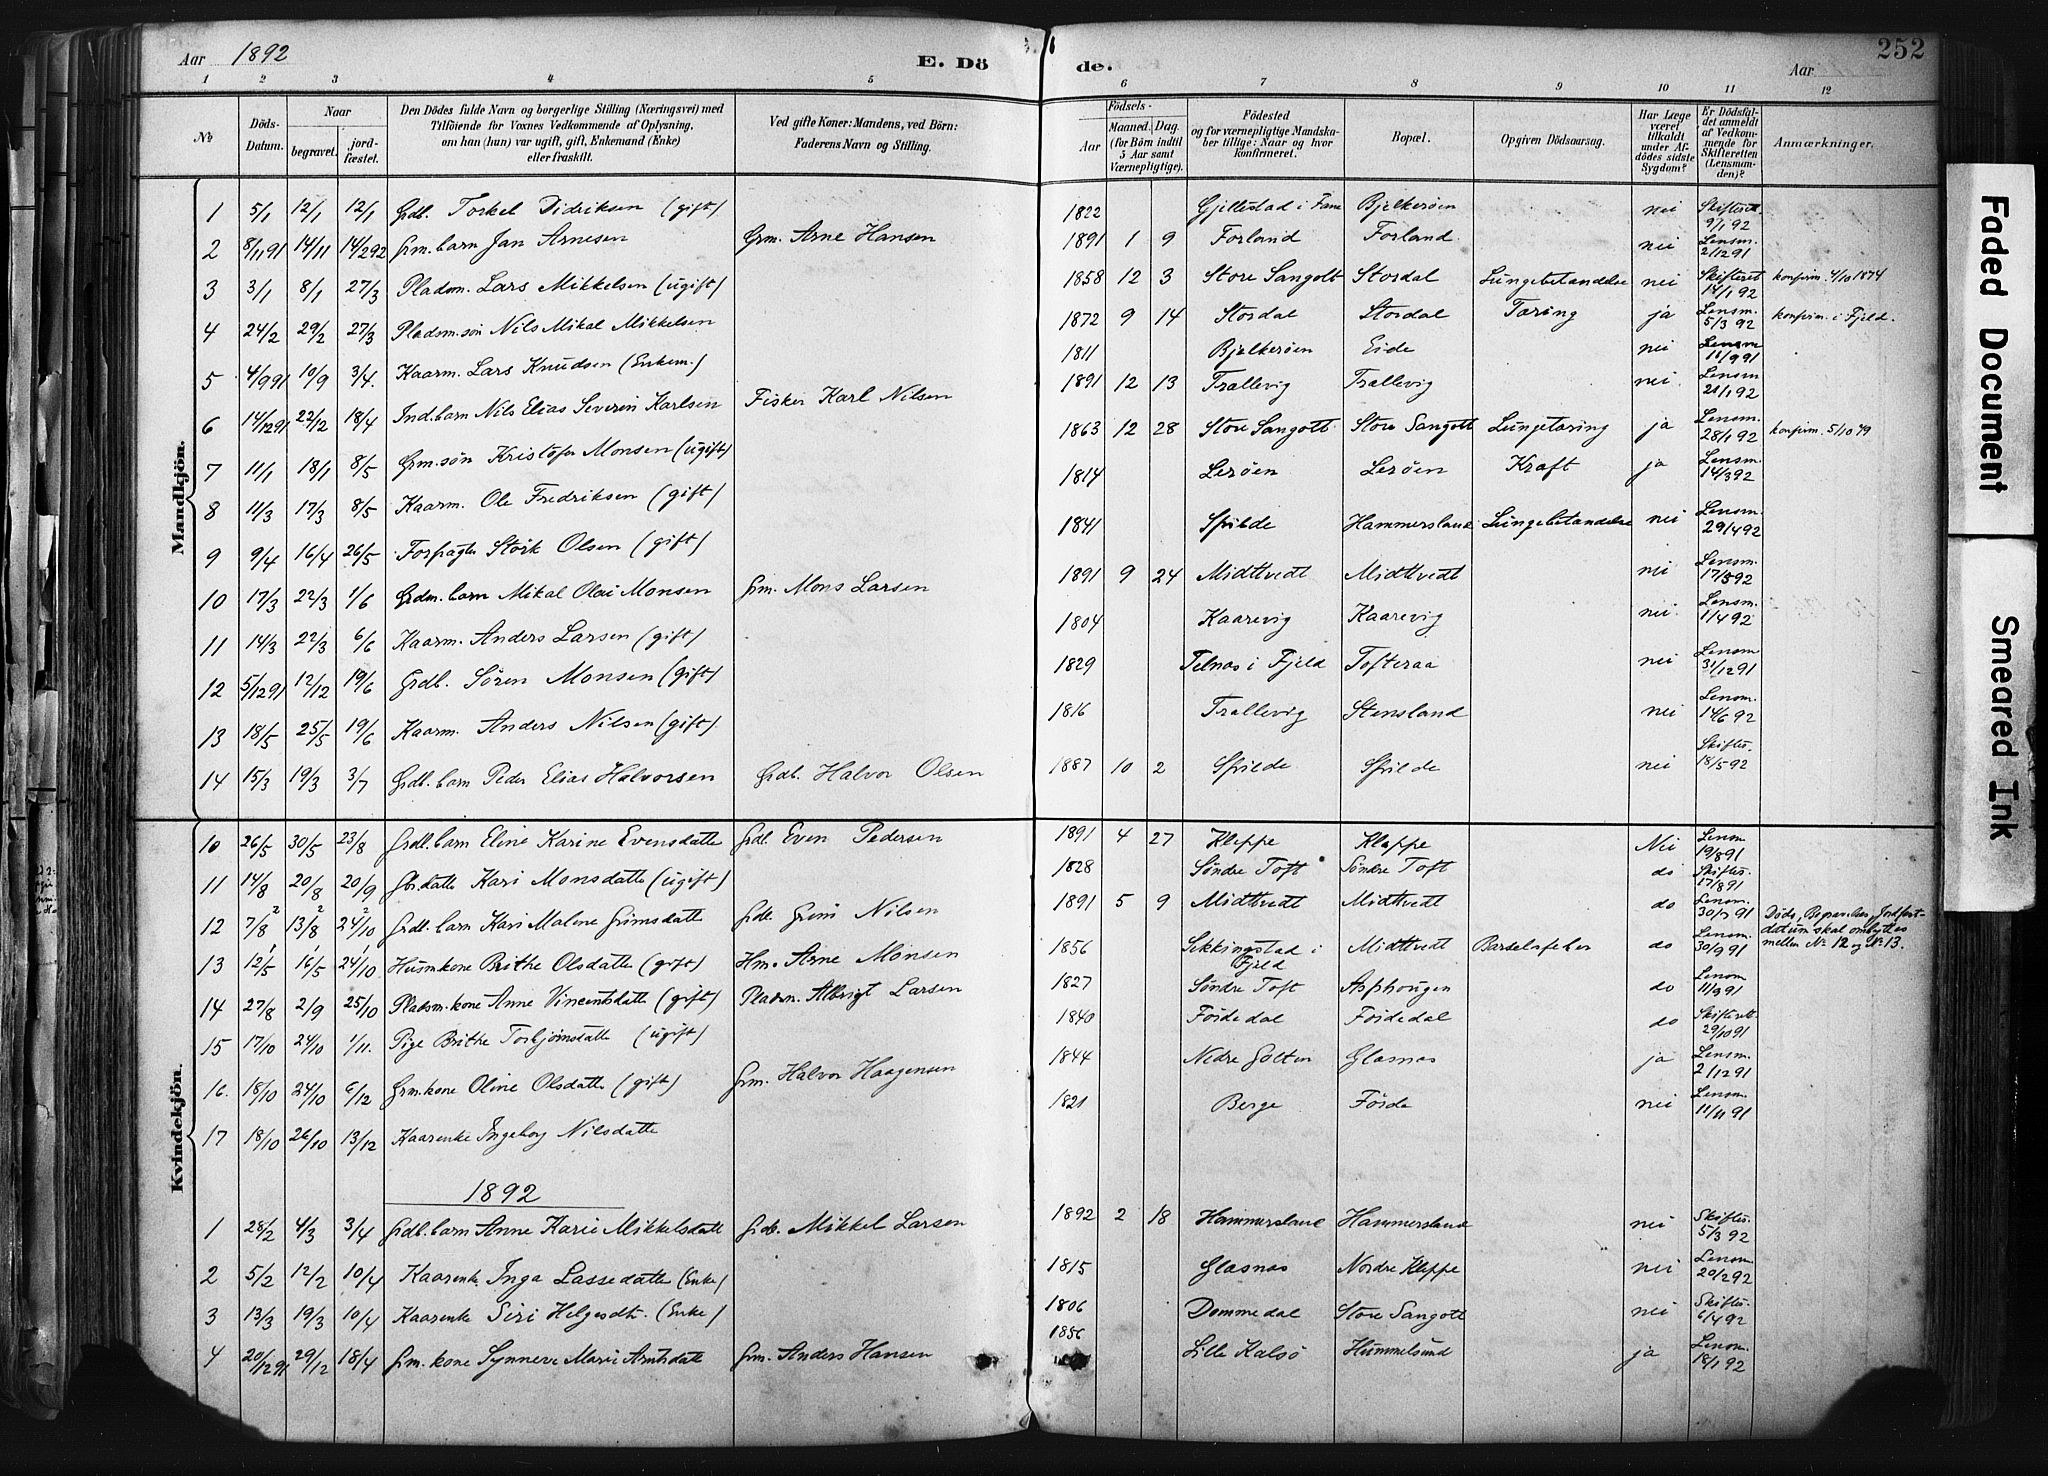 Aar 1892 E. Döde. Aar 252
1 2 3 4 5 6 7 8 9 10 11 12
No Döds-Datum. Naar begravet. jordfæstet. Den Dödes fulde Navn og borgerlige Stilling (Næringsvei) med Tilföiende for Voxnes Vedkommende af Oplysning, om han (hun) var ugift, gift, Enkemand (Enke) eller fraskilt. Ved gifte Koner: Mandens, ved Börn: Faderens Navn og Stilling. Födsels- Aar Maaned. Dag. (for Börn indtil 5 Aar samt Værnepligtige). Födested og for værnepligtige Mandskaber tillige: Naar og hvor konfirmeret. Bopæl. Opgiven Dödsaarsag. Har Læge været tilkaldt under Afdödes sidste Sygdom? Er Dödsfaldet anmeldt af Vedkommende for Skifteretten (Lensmanden)? Anmærkninger.
Mandkjön.
1 5/1 12/1 12/1 Grdb. Torkel Didriksen (gift) 1822 Gjellestad i Fane Bjelkeröen nei Skifteret. 9/1 92
2 8/11 91 14/11 14/2 92 Grm. barn Jan Arnesen Grm. Arne Hansen 1891 1 9 Forland Forland nei Lensm. 2/12 91
3 3/1 8/1 27/3 Pladsm. Lars Mikkelsen (ugift) 1858 12 3 Store Sangolt Stordal Lungebetændelse nei Skifteret 14/1 92 konfirm. 4/10 1874
4 24/2 29/2 27/3 Pladsm. sön Nils Mikal Mikkelsen 1872 9 14 Stordal Stordal Tæring ja Lensm. 5/3 92 konfirm. i Fjeld.
5 4/9 91 10/9 3/4. Kaarm. Lars Knudsen (Enkem.) 1811 Bjelkeröen Eide nei Lensm 11/9 91
6 14/12 91 22/12 18/4 Ind. barn Nils Elias Severin Karlsen Fisker Karl Nilsen 1891 12 13 Trællevig Trællevig nei. Lensm 21/1 92
7 11/1 18/1 8/5 Grm. sön Kristofer Monsen (ugift) 1863 12 28 Store Sangolt Store Sangolt Lungetæring ja Lensm. 28/1 92 konfirm. 5/10 79
8 11/3 17/3 8/5 Kaarm. Ole Fredriksen (gift) 1814 Leröen Leröen Kræft ja Lensm. 14/3 92
9 9/4 16/4 26/5 Forpagter Störk Olsen (gift) 1841 Spilde Hammersland Lungebetændelse nei Lensm. 29/4 92
10 17/3 22/3 1/6 Grdm. barn Mikal Olai Monsen Grm. Mons Larsen 1891 9 24 Midttvedt Midttvedt nei Lensm. 17/3 92
11 14/3 22/3 6/6 Kaarm. Anders Larsen (gift) 1804 Kaarevig Kaarevig nei. Lensm. 1/4 92
12 5/12 91 12/12 19/6 Grdb. Sören Monsen (gift) 1829 Telnæs i Fjeld Tofteraa nei Lensm 31/12 91
13 18/5 25/5 19/6 Kaarm. Anders Nilsen (gift) 1816 Trællevig Stensland nei Lensm. 14/6 92
14 15/3 19/3 3/7 Grdb. barn Peder Elias Halvorsen Grdb. Halvor Olsen 1887 10 2 Spilde Spilde nei Skifter. 18/5 92
Kvindekjön.
10 26/5 30/5 23/8 Grdb. barn Eline Karine Evensdatte Grdb. Even Pedersen 1891 4 27 Kleppe Kleppe Nei Lensm 19/8 91
11 14/8 20/8 20/9 Gbr. datte Kari Monsdatte (ugift) 1828 Söndre Toft Söndre Toft do Skifter. 17/8 91
12 7/8 2 13/8 2 24/10 2 Grdb. barn Kari Malene Grimsdatte Grdb. Grim Nilsen 1891 5 9 Midttvedt Midttvedt do Lensm. 30/9 91 Döds, Begravelses, Jordfæst-datum skal ombyttes mellem No. 12 og No. 13.
13 12/5 1 16/5 1 24/10 1 Husmkone Brithe Olsdatte (gift) Hm. Arne Monsen 1856 Sekkingstad i Fjeld Midttvedt Barselsfeber do Lensm. 30/9 91
14 27/8 2/9 25/10 Pladsm. kone Anne Vincentsdatte (gift) Pladsm. Albrigt Larsen 1827 Söndre Toft Asphougen do Lensm 11/9 91
15 17/10 24/10 1/11. Pige Brithe Torbjörnsdatte (ugift) 1840 Foldedal Foldedal do Skifterett. 29/10 91
16. 18/10 24/10 6/12 Grm. kone Oline Olsdatte (gift) Grm. Halvor Haagensen 1844 Nedre Golten Glæsnæs ja Lensm. 2/12 91
17 18/10 26/10 13/12 Kaarenke Ingeborg Nilsdatte 1821 Berge Förde nei Lensm. 11/11 91
1892
1 28/2 4/3 3/4 Grdb. barn Anne Karie Mikkelsdatte Grdb. Mikkel Larsen 1892 2 18 Hammersland Hammersland nei Skifter. 5/3 92
2 5/2 12/2 10/4 Kaarenke Inga Lassedatte (Enke) 1815 Glæsnæs Nordre Kleppe nei Lensm. 20/2 92
3 13/3 19/3 10/4 Kaarenke Siri Helgesdt. (Enke) 1806 Dommedal Store Sangolt nei Skifter. 6/4 92
4 20/12 91 29/12 18/4 Grm. kone Synneve Marie Arntsdatte Grm. Anders Hansen 1856 Lille Kalsö Hummelsund ja Lensm. 18/1 92
Faded Document
Smeared Ink